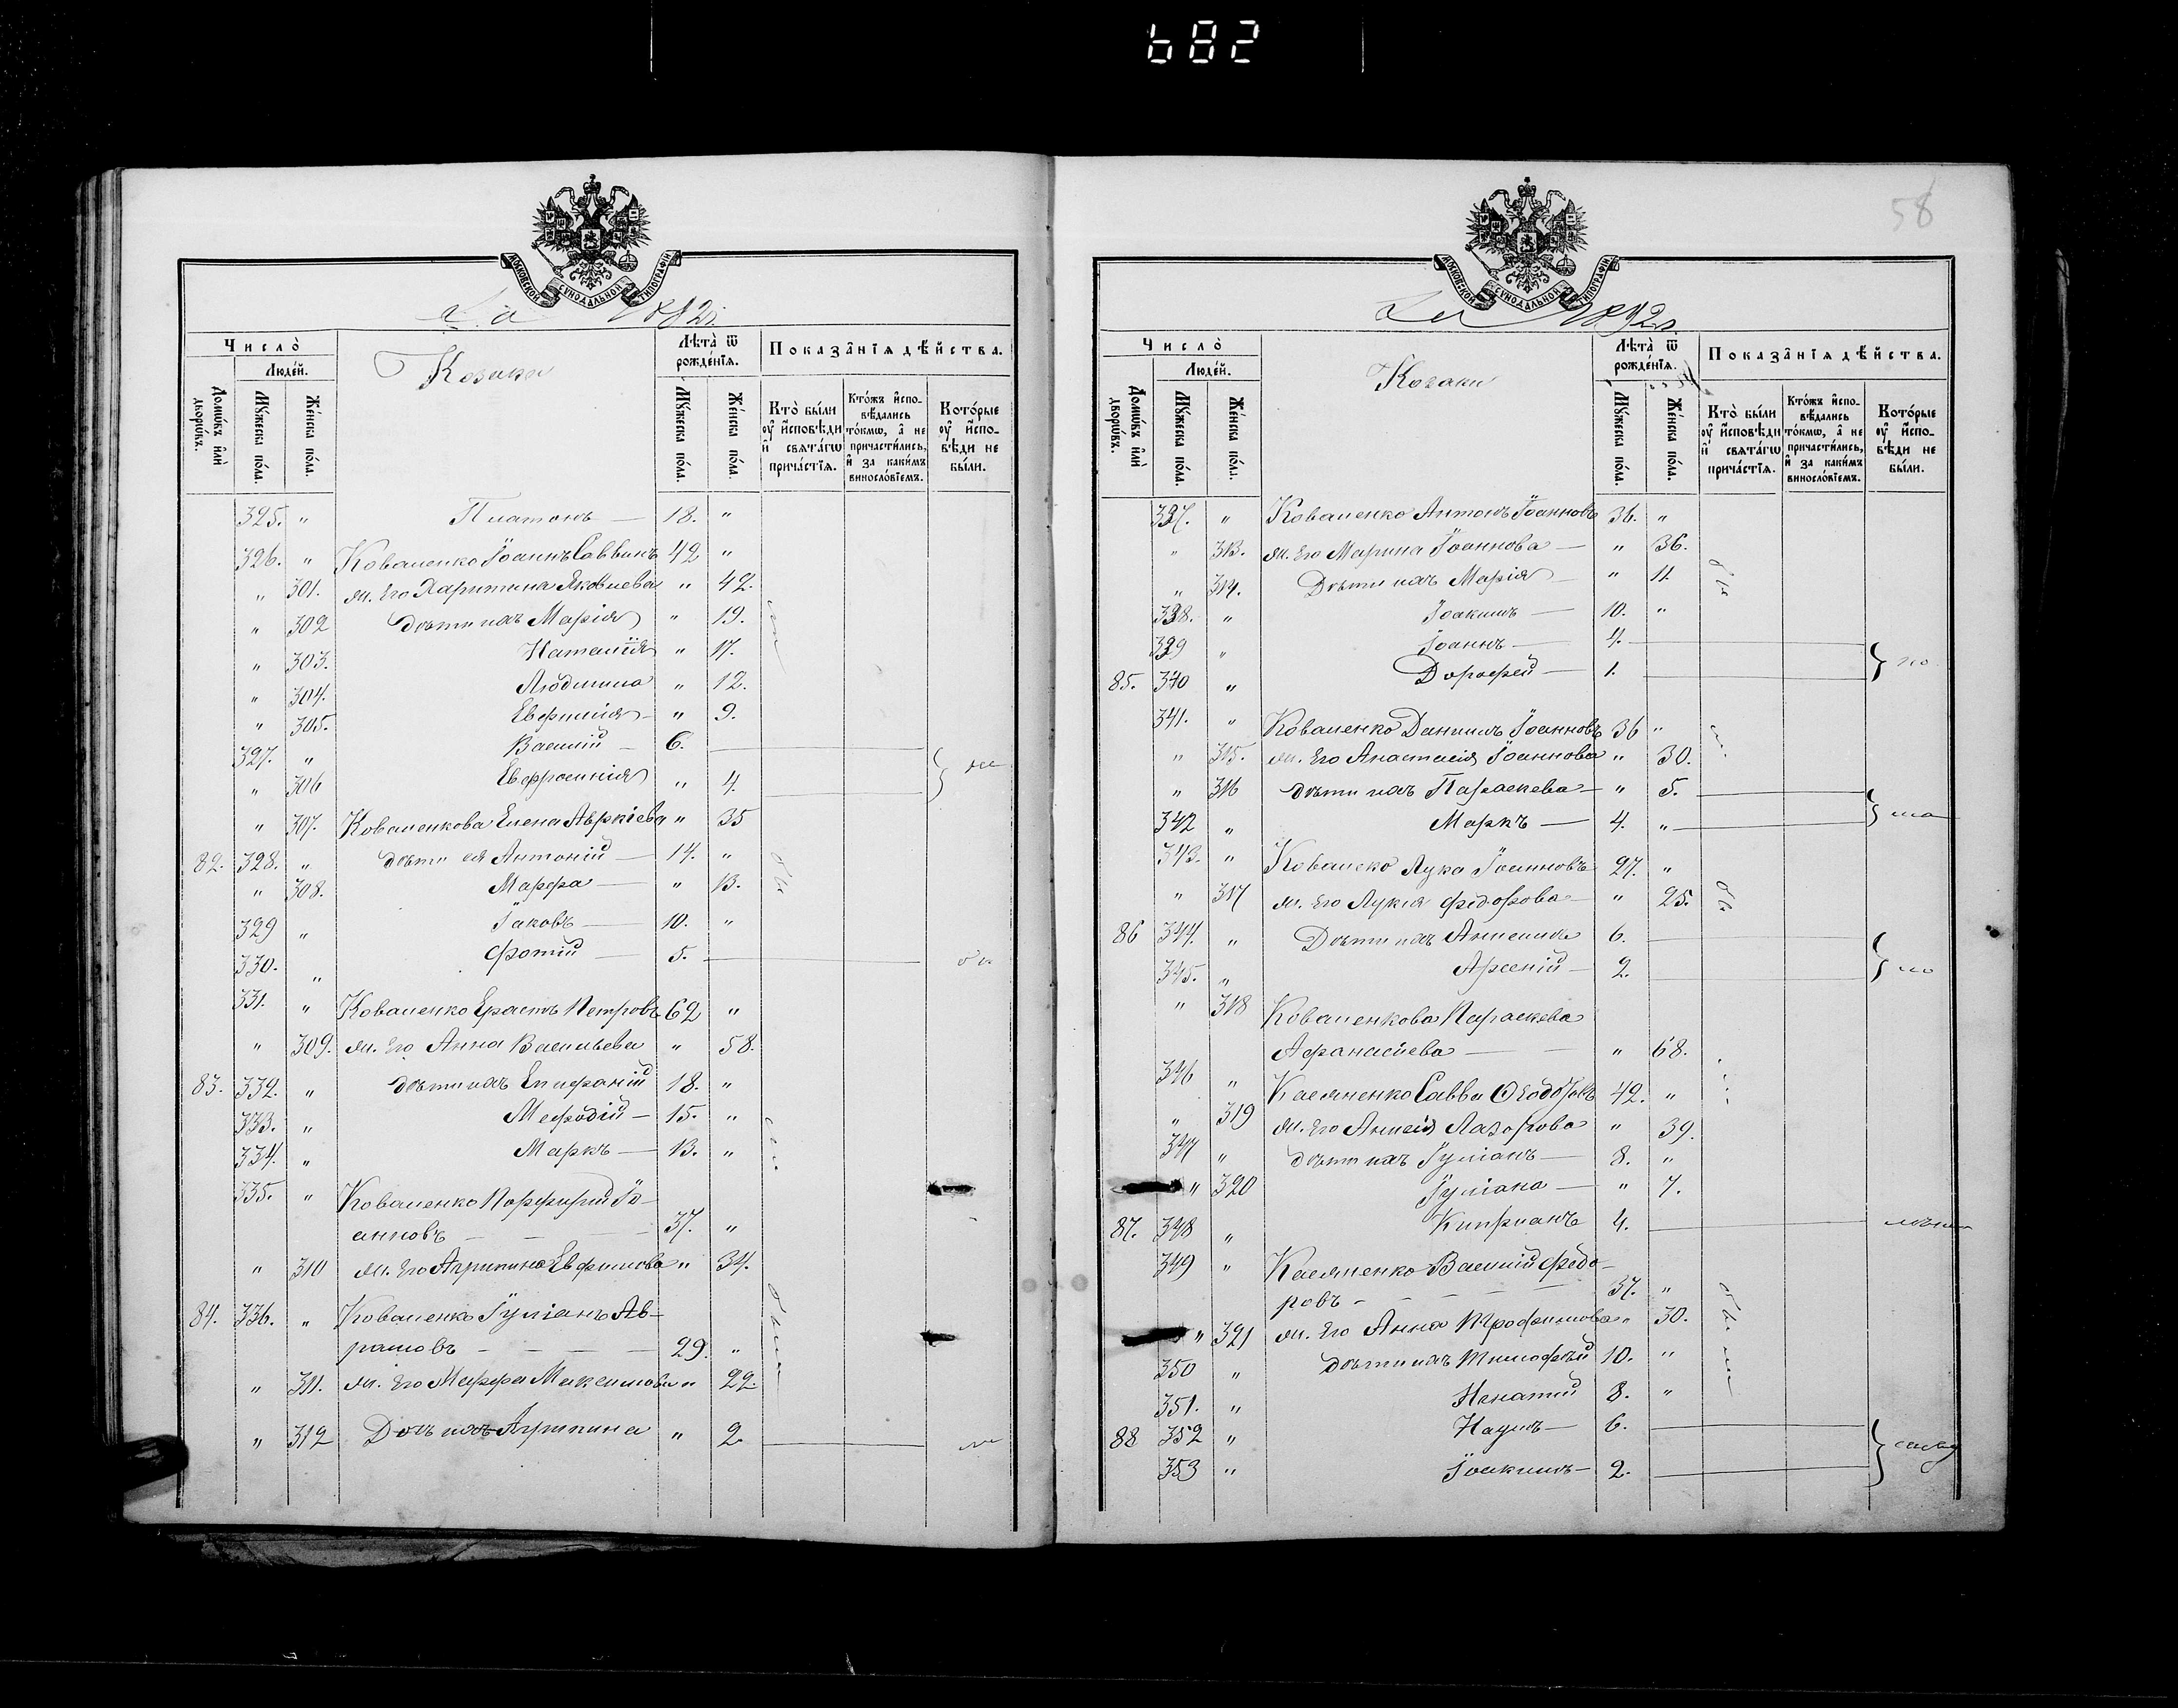 682
МОСКОВСКОЙ СѴНОДАЛЬНОЙ ТИПОГРАФІИ
За 1892 г.
Число̀
Людéй.
Домѡ́въ и҆лѝ дворѡ́въ.
Мꙋ́жеска по́ла.
Же́нска по́ла.
Козаки
Лѣ́та ѿ рожде́нїѧ.
Мꙋ́жеска по́ла.
Же́нска по́ла.
Показа̑нїѧ дѣ́йства.
Кто̀ бы́ли оу҆ и҆сповѣ́ди и҆ свѧта́гѡ прича́стїѧ.
Кто́жъ и҆сповѣ́дались то́кмѡ, а҆ не причасти́лись, и҆ за каки́мъ винослóвїемъ.
Кото́рые оу҆ и҆сповѣ́ди не бы́ли.
325. " Платонъ — 18. "
326. " Коваленко Іоаннъ Саввинъ 42 "
" 301. ж. Его Харитина Яковлева " 42.
" 302 дѣти ихъ Марія " 19.
" 303. Наталія " 17.
" 304. Людмила " 12.
" 305. Евфимія " 9.
327. " Василій — 6.
" 306 Евфросинія " 4.
" 307. Коваленкова Елена Авркіева " 35
82. 328. " дѣти ея Антоній — 14. "
" 308. Марфа — " 13.
329 " Іаковъ — 10. "
330. " Фотій — 5.
331. " Коваленко Ерастъ Петровъ 62 "
" 309. ж. Его Анна Васильева " 58.
83. 332. " дѣти ихъ Епифаній 18. "
333. " Мефодій — 15. "
334. " Маркъ — 13. "
335. " Коваленко Порфирій Іо-
анновъ — 37. "
" 310 ж. Его Агрипина Евфимова " 34.
84. 336. " Коваленко Іуліанъ Ав-
рамовъ — 29. "
" 311. ж. Его Марфа Максимова " 22.
" 312 Дочь ихъ Агрипина " 2.
58
МОСКОВСКОЙ СѴНОДАЛЬНОЙ ТИПОГРАФІИ
За 1892 г.
Число̀
Людéй.
Домѡ́въ и҆лѝ дворѡ́въ.
Мꙋ́жеска по́ла.
Же́нска по́ла.
Козаки
Лѣ́та ѿ рожде́нїѧ.
Мꙋ́жеска по́ла.
Же́нска по́ла.
Показа̑нїѧ дѣ́йства.
Кто̀ бы́ли оу҆ и҆сповѣ́ди и҆ свѧта́гѡ прича́стїѧ.
Кто́жъ и҆сповѣ́дались то́кмѡ, а҆ не причасти́лись, и҆ за каки́мъ винослóвїемъ.
Кото́рые оу҆ и҆сповѣ́ди не бы́ли.
337. " Коваленко Антонъ Іоанновъ 36. "
" 313. ж. Его Марина Іоаннова — " 36.
" 314. Дѣти ихъ Марія — " 11.
338. " Іоакимъ — 10. "
339 " Іоаннъ — 4.
85. 340 " Дорофей — 1.
341. " Коваленко Даниилъ Іоанновъ 36 "
" 315. ж. Его Анастасія Іоаннова " 30.
" 316 дѣти ихъ Параскева — " 5.
342 " Маркъ — 4. "
343. " Ковалеко Лука Іоанновъ 27. "
" 317 ж. Его Лукія Федорова — " 25.
86 344. " Дѣти ихъ 6.
345. " Арсеній — 2.
" 318 Коваленкова Параскева
Афанасіева — " 68.
346 " Касяненко Савва Ѳеодоровъ 42. "
" 319 ж. Его Анисія Лазорова " 39.
347 " дѣти ихъ Іуліанъ — 8. "
" 320 Іуліана — " 7.
87. 348 " Кипріанъ 4.
349 " Касяненко Василій Федо-
ровъ — 37. "
" 321 ж. Его Анна Трофимова " 30.
350 " дѣти ихъ Тимофѣй 10. "
351. " 8. "
88 352 " Наумъ — 6.
353 " Іоакимъ — 2.